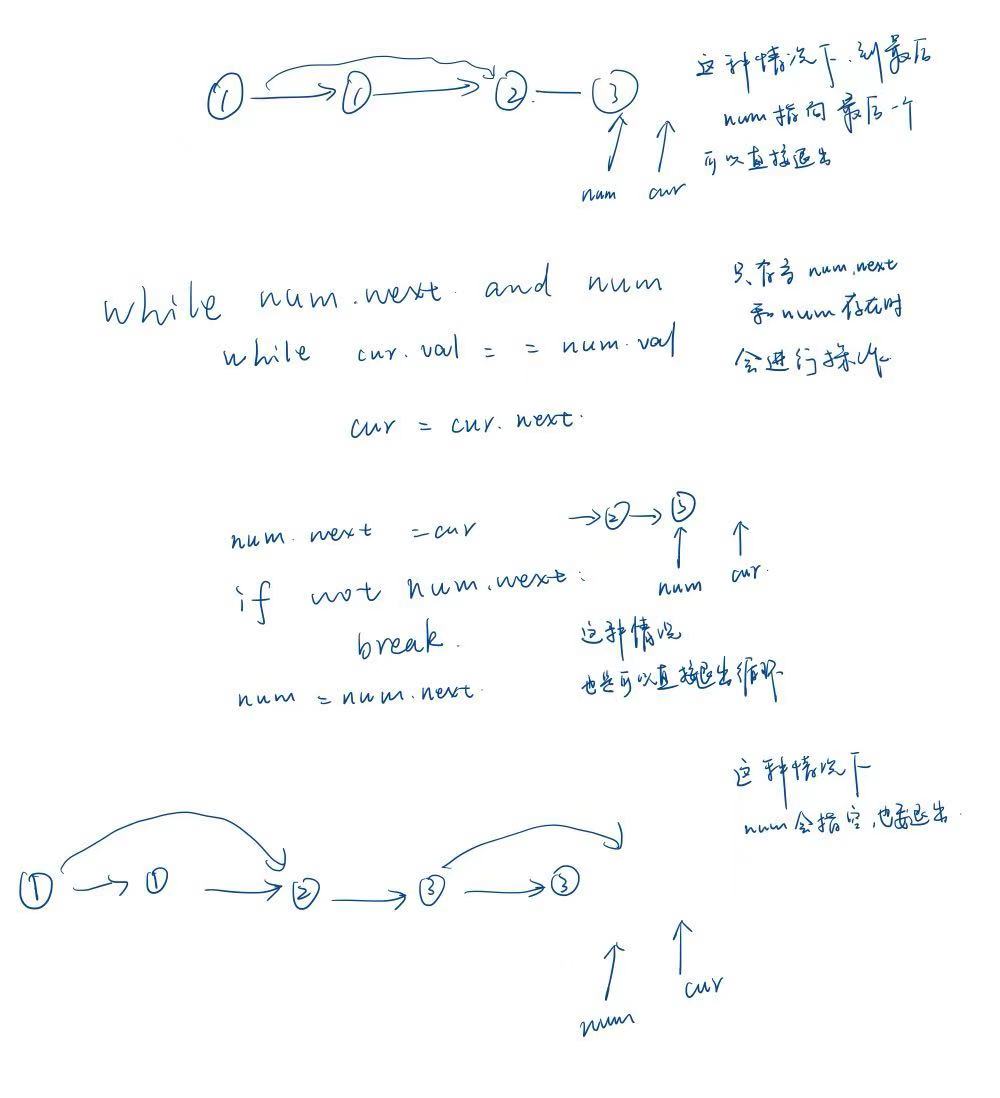 ① ① ② ③
这种情况下,到最后
num 指向 最后一个
可以直接退出
num cur
while num.next. and num
while cur.val = = num.val
cur = cur. next.
只有当 num.next
和 num 存在时
会进行操作
num. next = cur
if not num.next:
break.
num = num.next.
② ③
num cur.
这种情况
也是可以直接退出循环
这种情况下
num 会指空,也要退出.
① ① ② ③ ③
num
cur